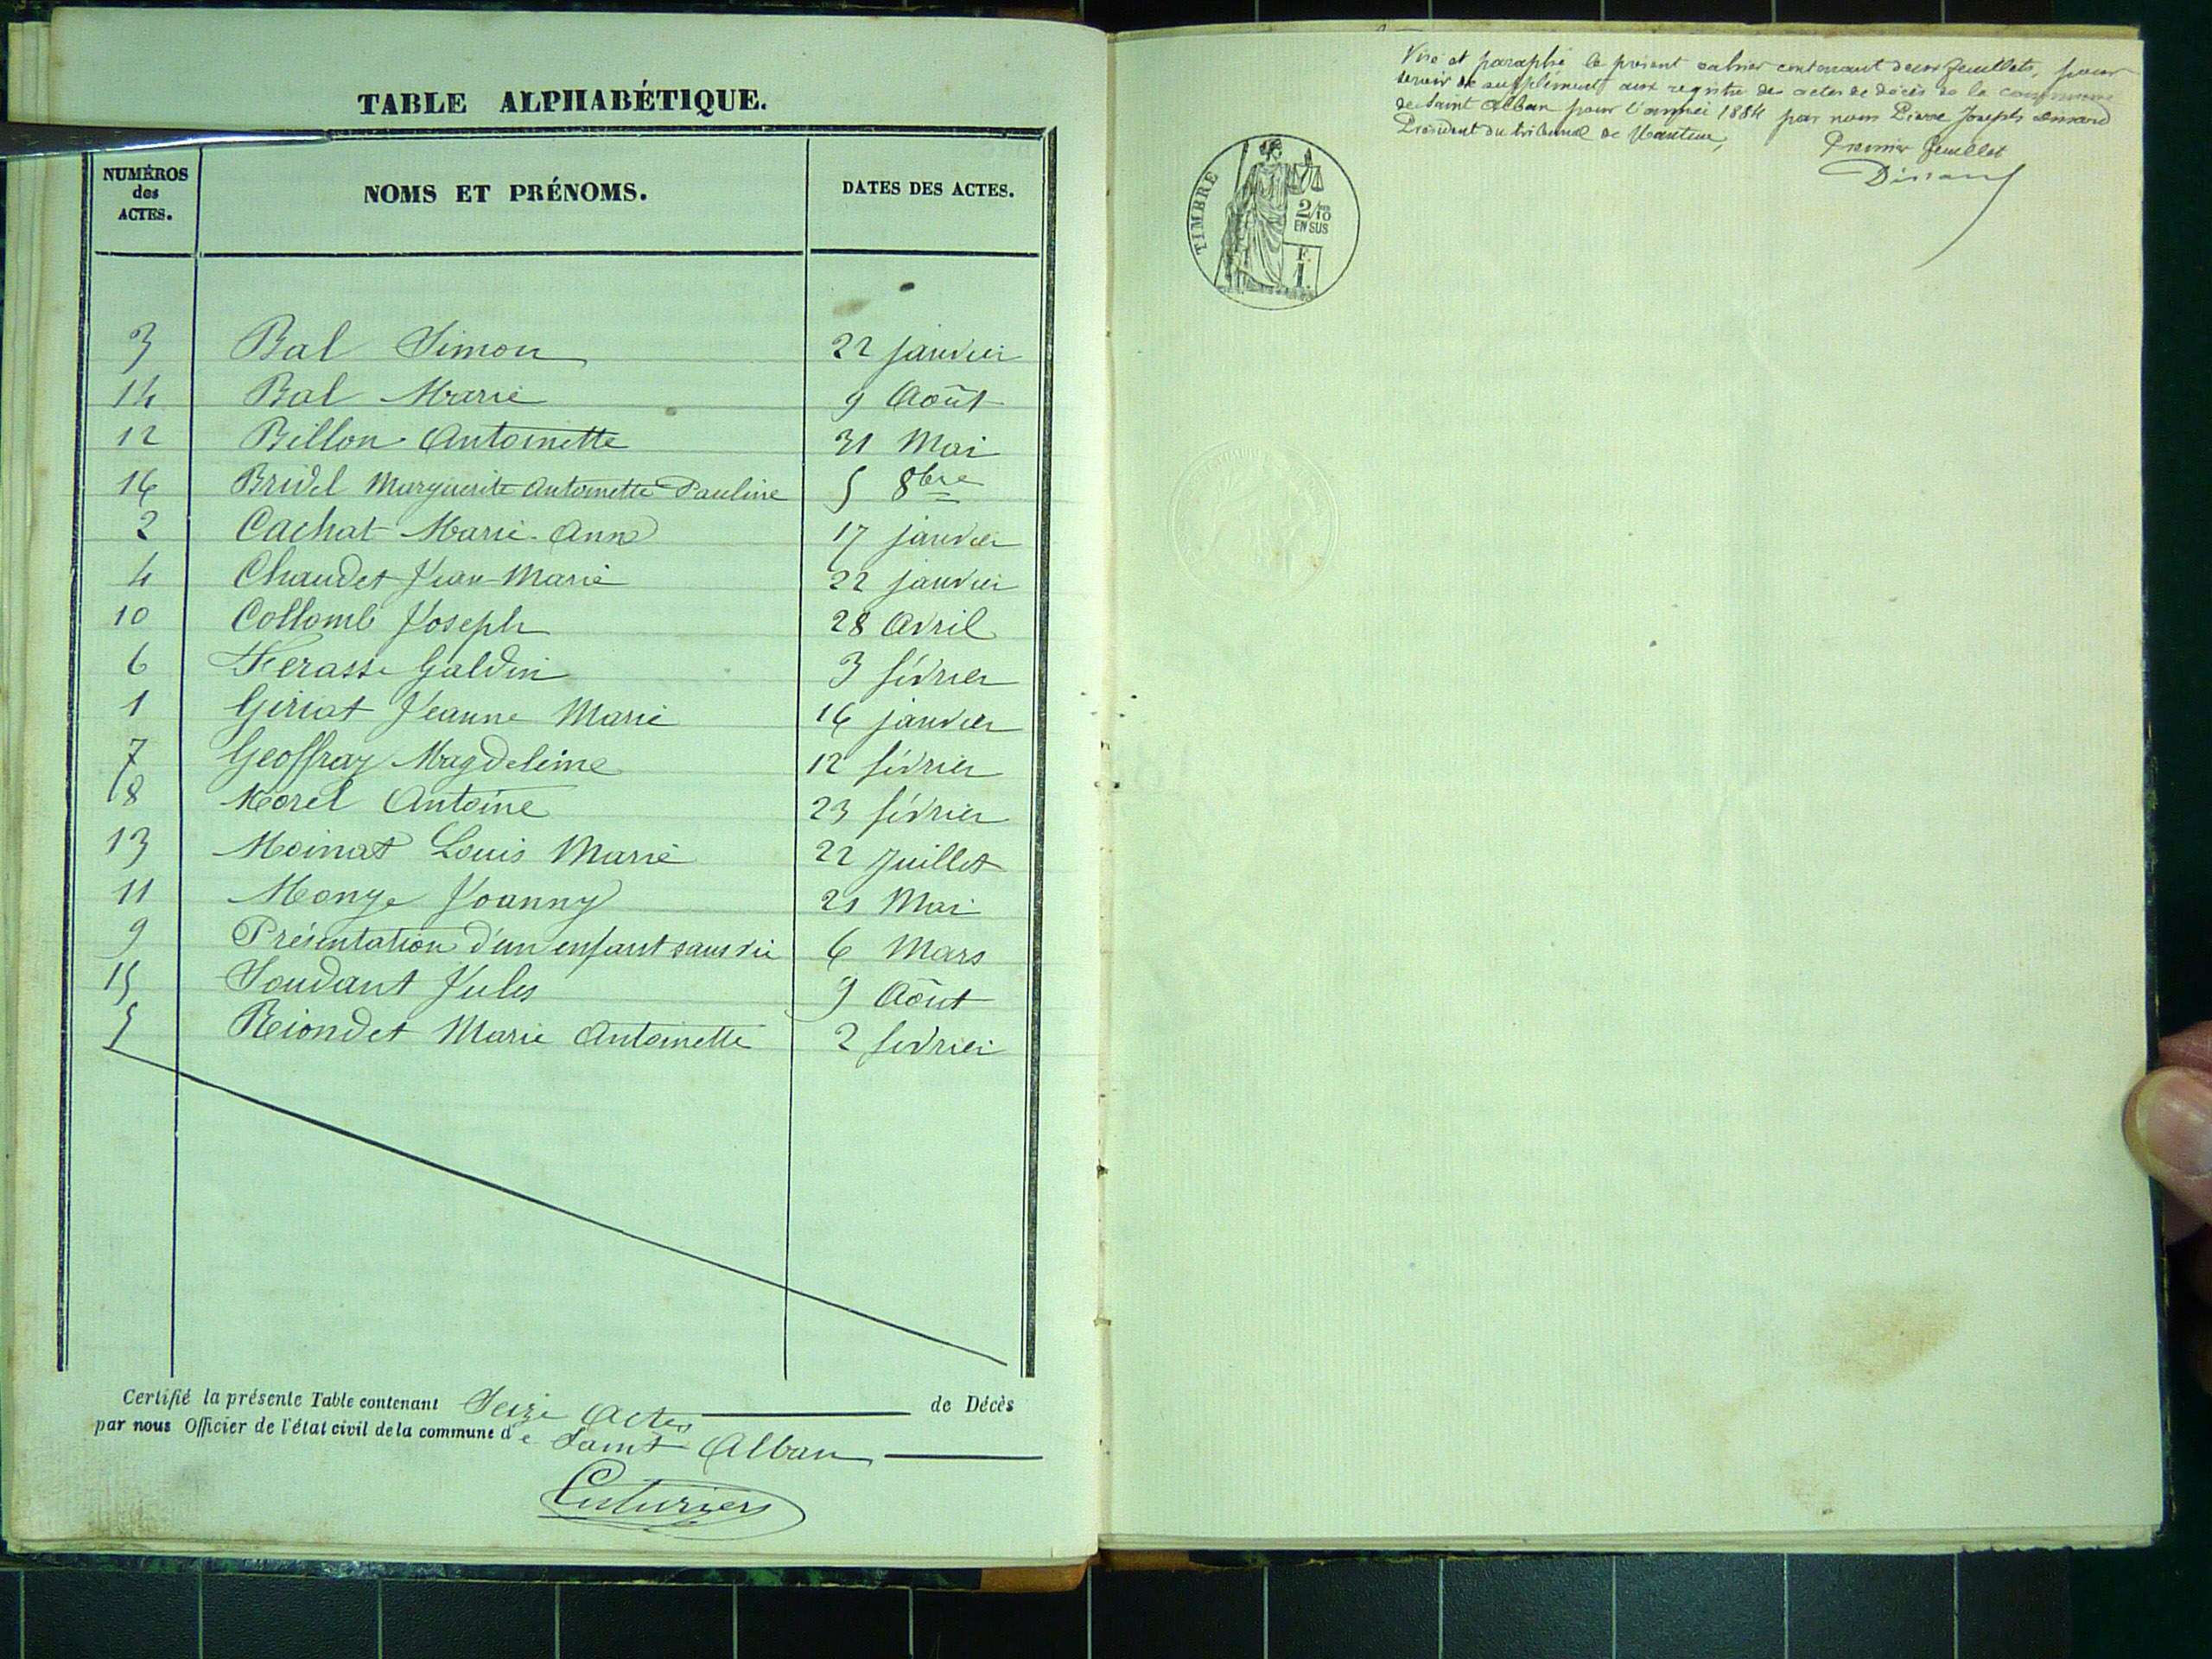 TABLE ALPHABÉTIQUE.
NUMÉROS des ACTES. NOMS ET PRÉNOMS. DATES DES ACTES.
3 Bal Simon 22 janvier
14 Bal Marie 9 Août
12 Billon Antoinette 31 Mai
16 Bridel Marguerite Antoinette Pauline 5 8bre
2 Cachat Marie-Anne 17 janvier
4 Chaudet Jean-Marie 22 janvier
10 Collomb Joseph 28 Avril
6 Ferasse Galdin 3 février
1 Giriat Jeanne Marie 16 janvier
7 Geoffray Magdeleine 12 février
8 Morel Antoine 23 février
13 Moinat Louis Marie 22 Juillet
11 Monge Joanny 21 Mai
9 Présentation d'un enfant sans vie 6 Mars
15 Soudant Jules 9 Août
5 Riondet Marie Antoinette 2 février
Certifié la présente Table contenant Seize Actes de Décès
par nous Officier de l'état civil de la commune de Saint Alban
Visé et paraphé le présent cahier contenant deux feuillets, pour
servir de supplément aux registre de actes de décès de la commune
de Saint Alban pour l'année 1884 par nous Pierre Joseph
Président du tribunal de Nantua,
Premier feuillet
TIMBRE
2/10
EN SUS
F.
1.